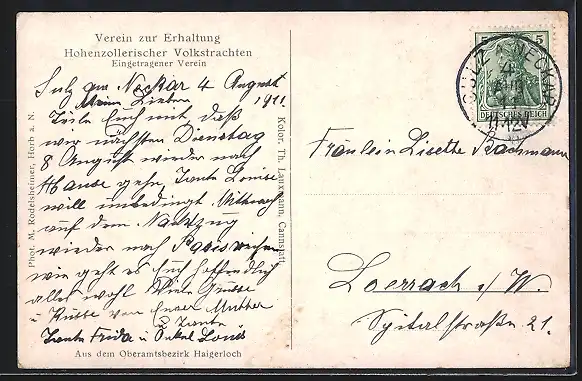 Verein zur Erhaltung
Hohenzollerischer Volkstrachten
Eingetragener Verein
Sulz am Neckar 4 August
1911.
Meine Lieben
Teile Euch mit, daß
wir nächsten Dienstag
8 August wieder nach
Hause gehn, Tante Louise
will unbedingt Mittwoch
auf dem Nachtzug
wieder nach Paris
wie geht es Euch hoffendlich
alles wohl Viele Grüsse
u Küsse von Eurer Mutter
Tante Frida u Onkel Louis
Aus dem Oberamtsbezirk Haigerloch
Phot. M. Rodelsheimer, Horb a. N.
Kolor. Th. Lauxmann, Cannstatt.
5
DEUTSCHES REICH
SULZ NECKAR
4
11-12V
Fräulein Lisette Bachmann
Loerrach i/W.
Spitalstraße 21.